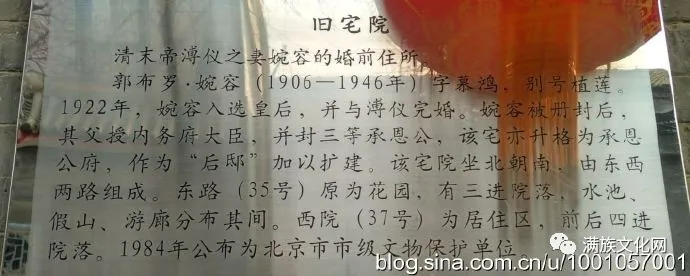 旧宅院
清末帝溥仪之妻婉容的婚前住所。
郭布罗·婉容（1906—1946年）字慕鸿，别号植莲。
1922年，婉容入选皇后，并与溥仪完婚。婉容被册封后，
其父授内务府大臣，并封三等承恩公，该宅亦升格为承恩
公府，作为“后邸”加以扩建。该宅院坐北朝南，由东西
两路组成。东路（35号）原为花园，有三进院落，水池、
假山、游廊分布其间。西院（37号）为居住区，前后四进
院落。1984年公布为北京市市级文物保护单位
满族文化网
blog.sina.com.cn/u/1001057001